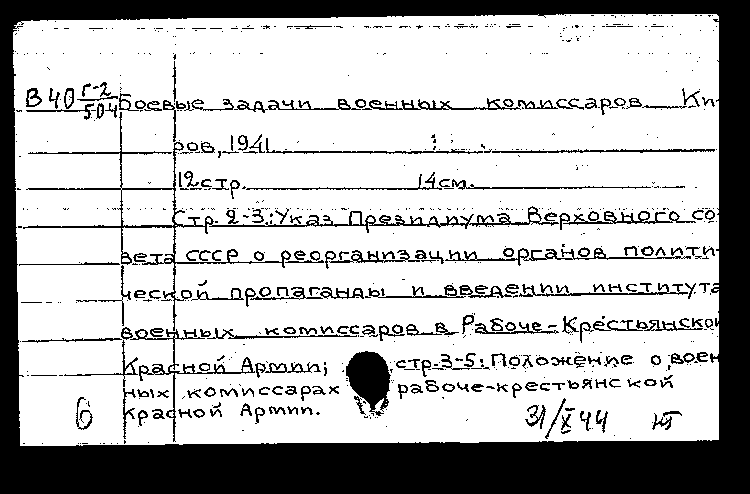 В 40 Г-2/504 Боевые задачи военных комиссаров Ки-
ров, 1941.
12 стр. 14 см.
Стр. 2-3: Указ Президиума Верховного со
вета СССР о реорганизации органов полити-
ческой пропаганды и введении института
военных комиссаров в Рабоче-Крестьянской
Красной Армии; стр. 3-5: Положение о воен
ных комиссарах рабоче-крестьянской
Красной Армии.
6 31/X 44